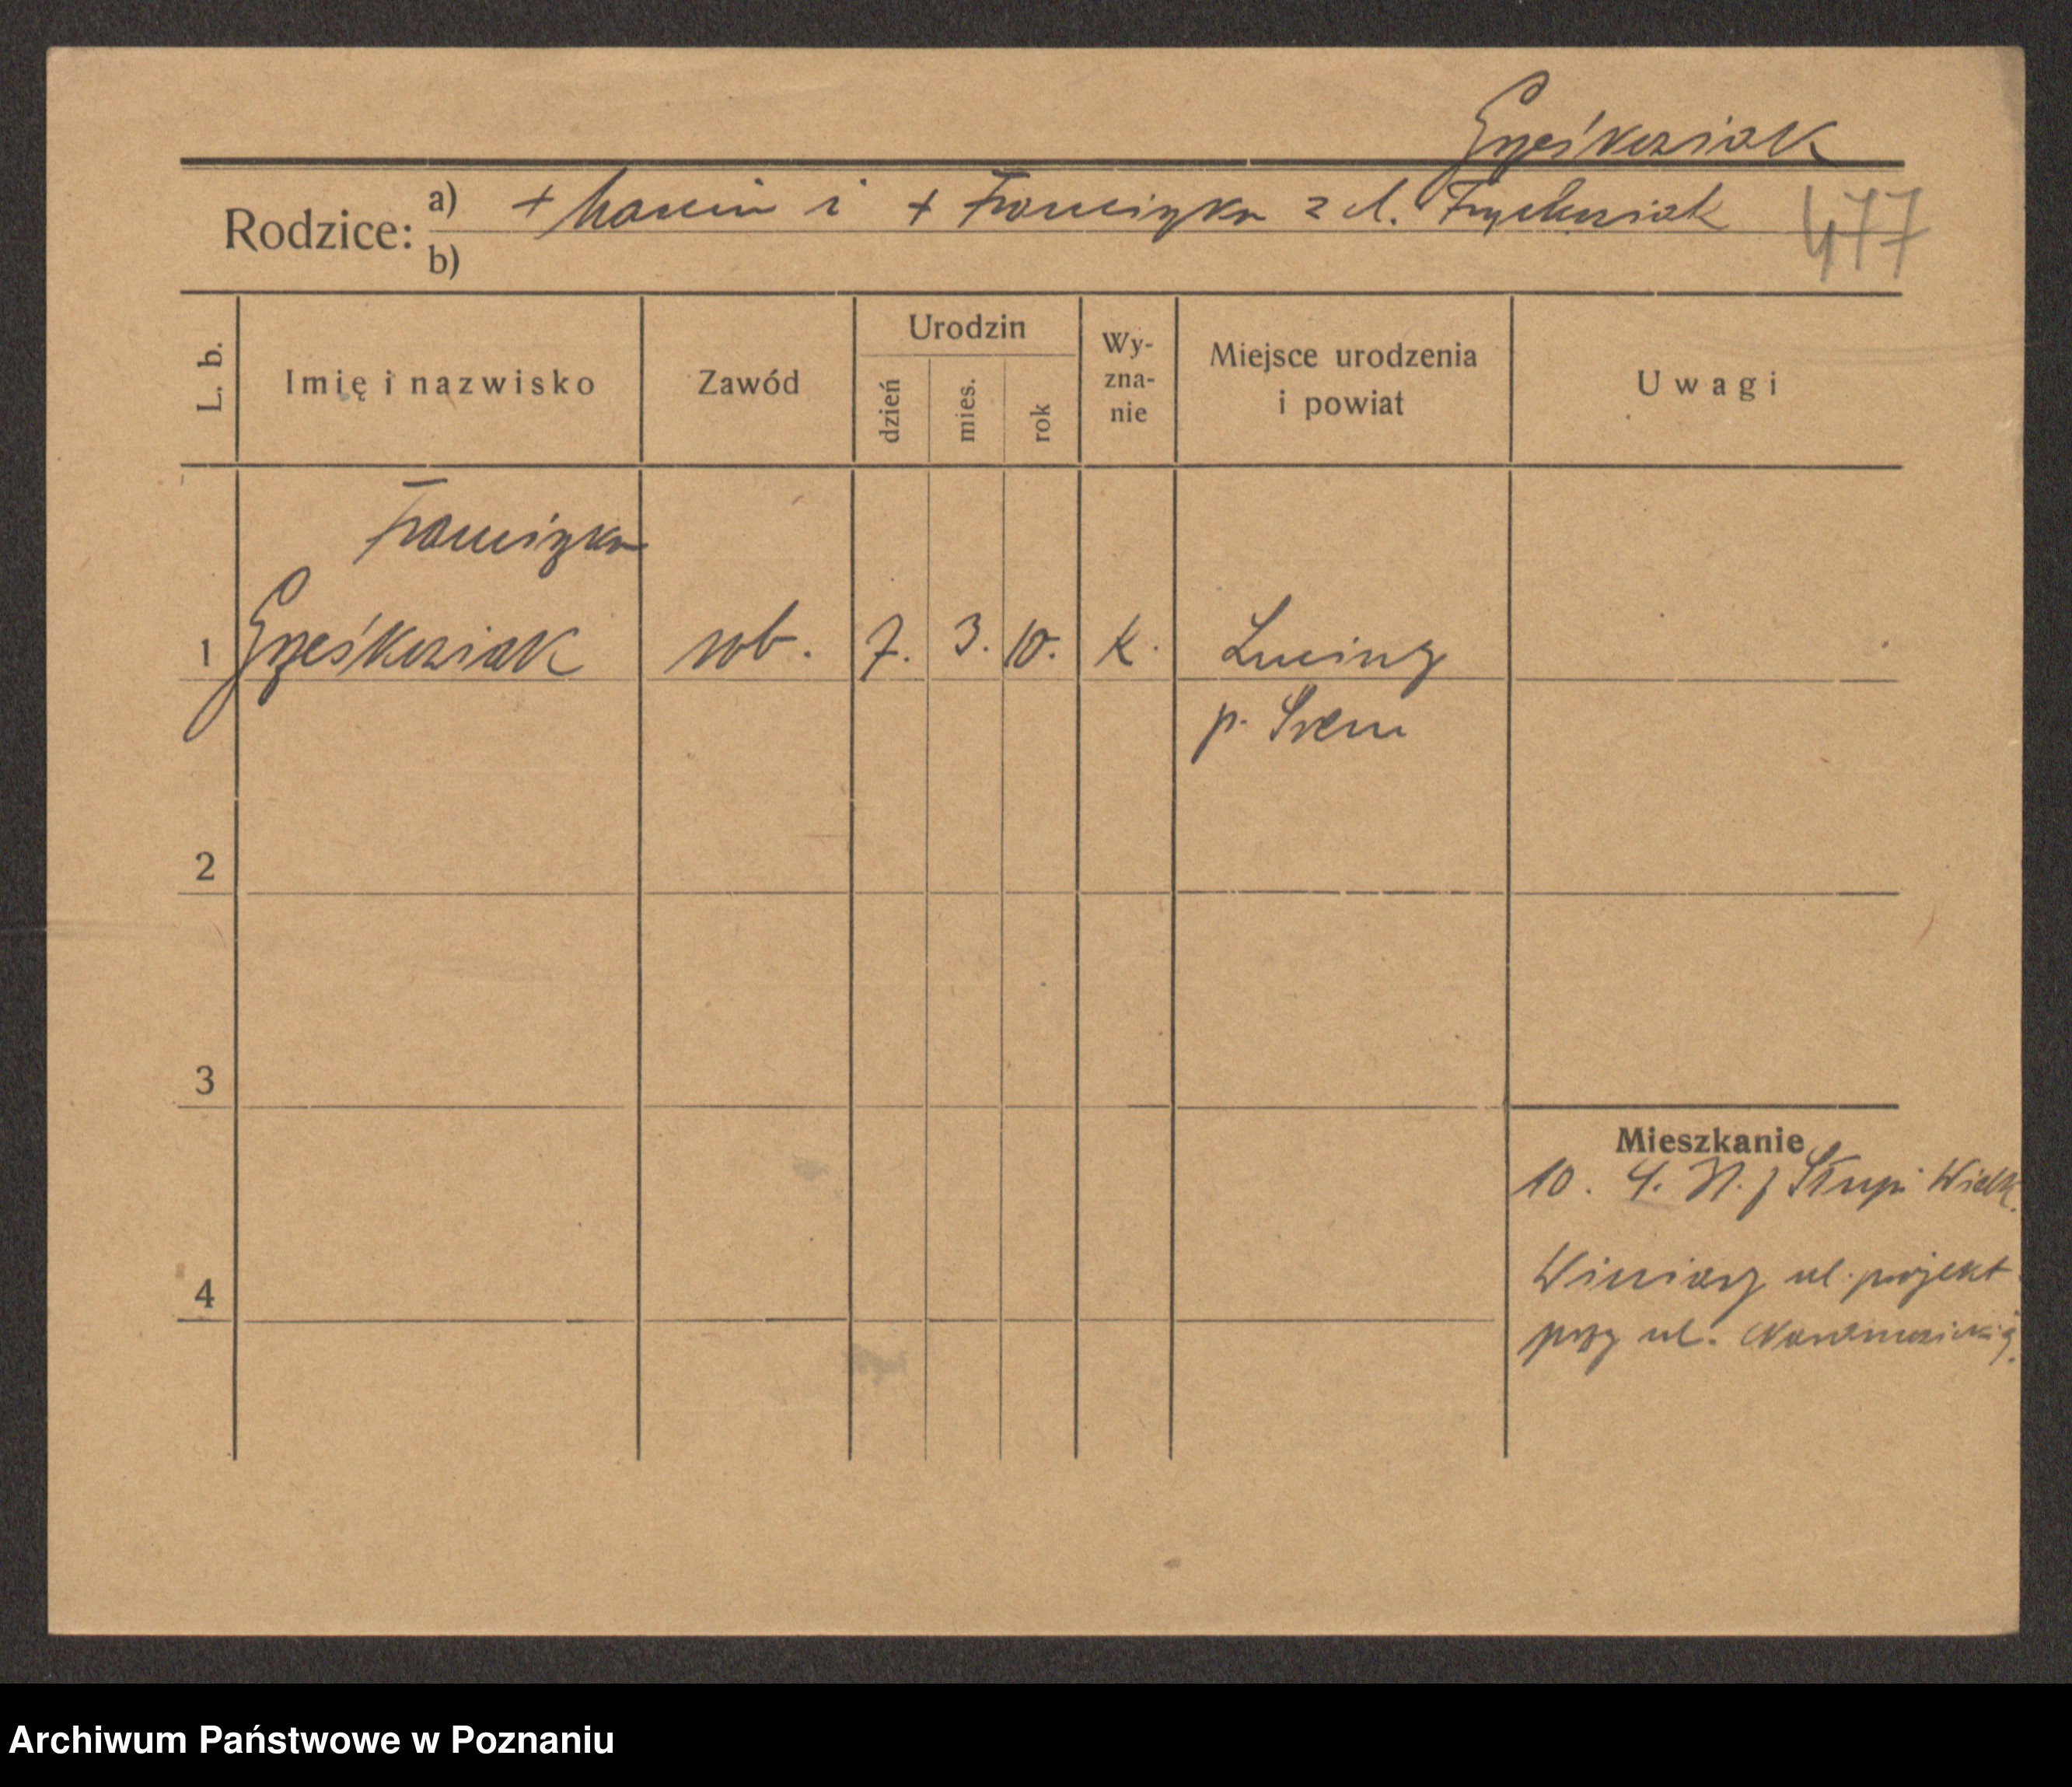 Grześkowiak
Rodzice: a) + Marcin i + Franciszka z d. Fryckowiak 477
b)
L. b. Imię i nazwisko Zawód Urodzin dzień mies. rok Wy-zna-nie Miejsce urodzenia i powiat Uwagi
Franciszka
1 Grześkowiak rob. 7. 3. 10. k. Luciny
p. Śrem
2
3
Mieszkanie
10. 4. z Słupi Wielk.
4 Winiary ul. projekt.
przy ul.
Archiwum Państwowe w Poznaniu